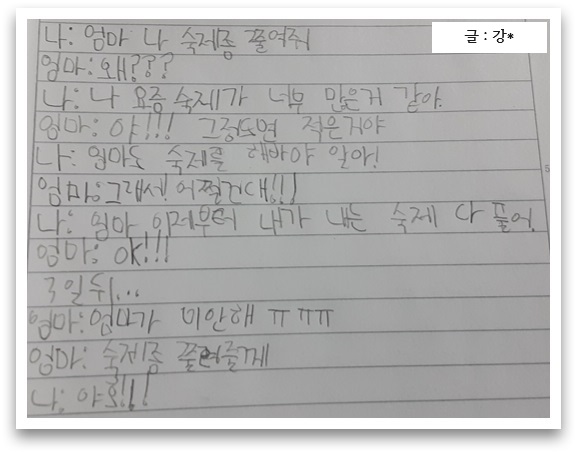 글 : 강*
나: 엄마 나 숙제좀 쭐여줘
엄마: 왜???
나: 나 요즘 숙제가 너무 많은거 같아.
엄마: 야!!! 그정도면 적은거야
나: 엄마도 숙제를 해바야 알아!
엄마: 그래서! 어쩔건대!!!
나: 엄마 이제부터 내가 내는 숙제 다 풀어.
엄마: OK!!!
3일뒤...
엄마: 엄마가 미안해 ㅠㅠㅠ
엄마: 숙제좀 쭐여줄게
나: 야호!!!